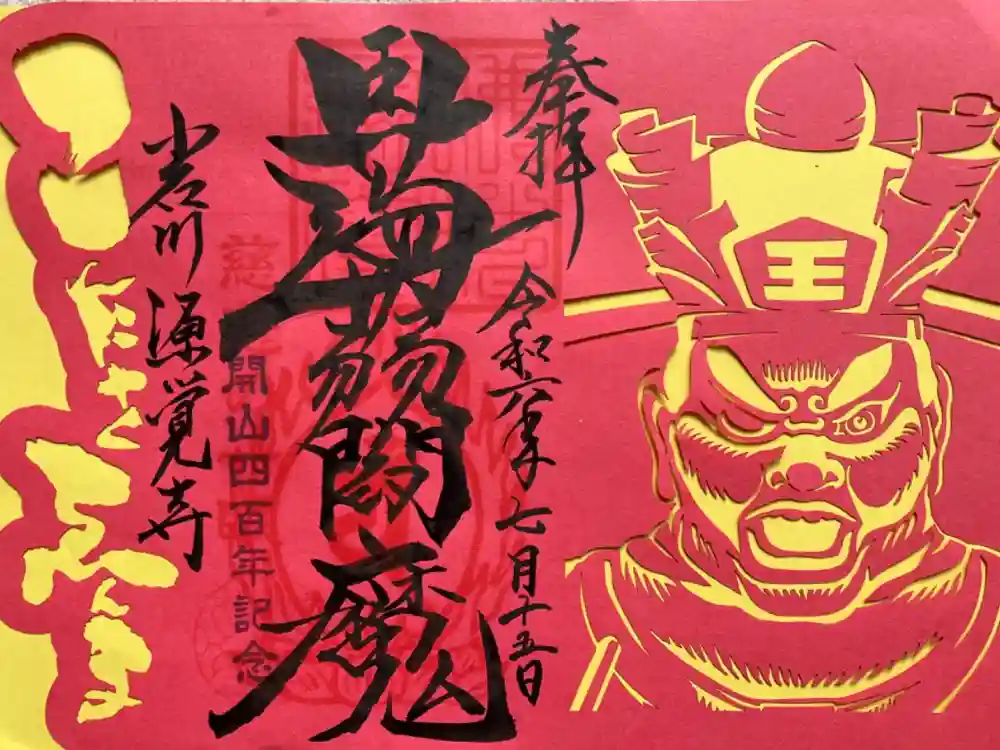 奉拝
令和六年七月十五日
蒟蒻閻魔
開山四百年記念
小石川 源覚寺
こんにゃくゑんま
王